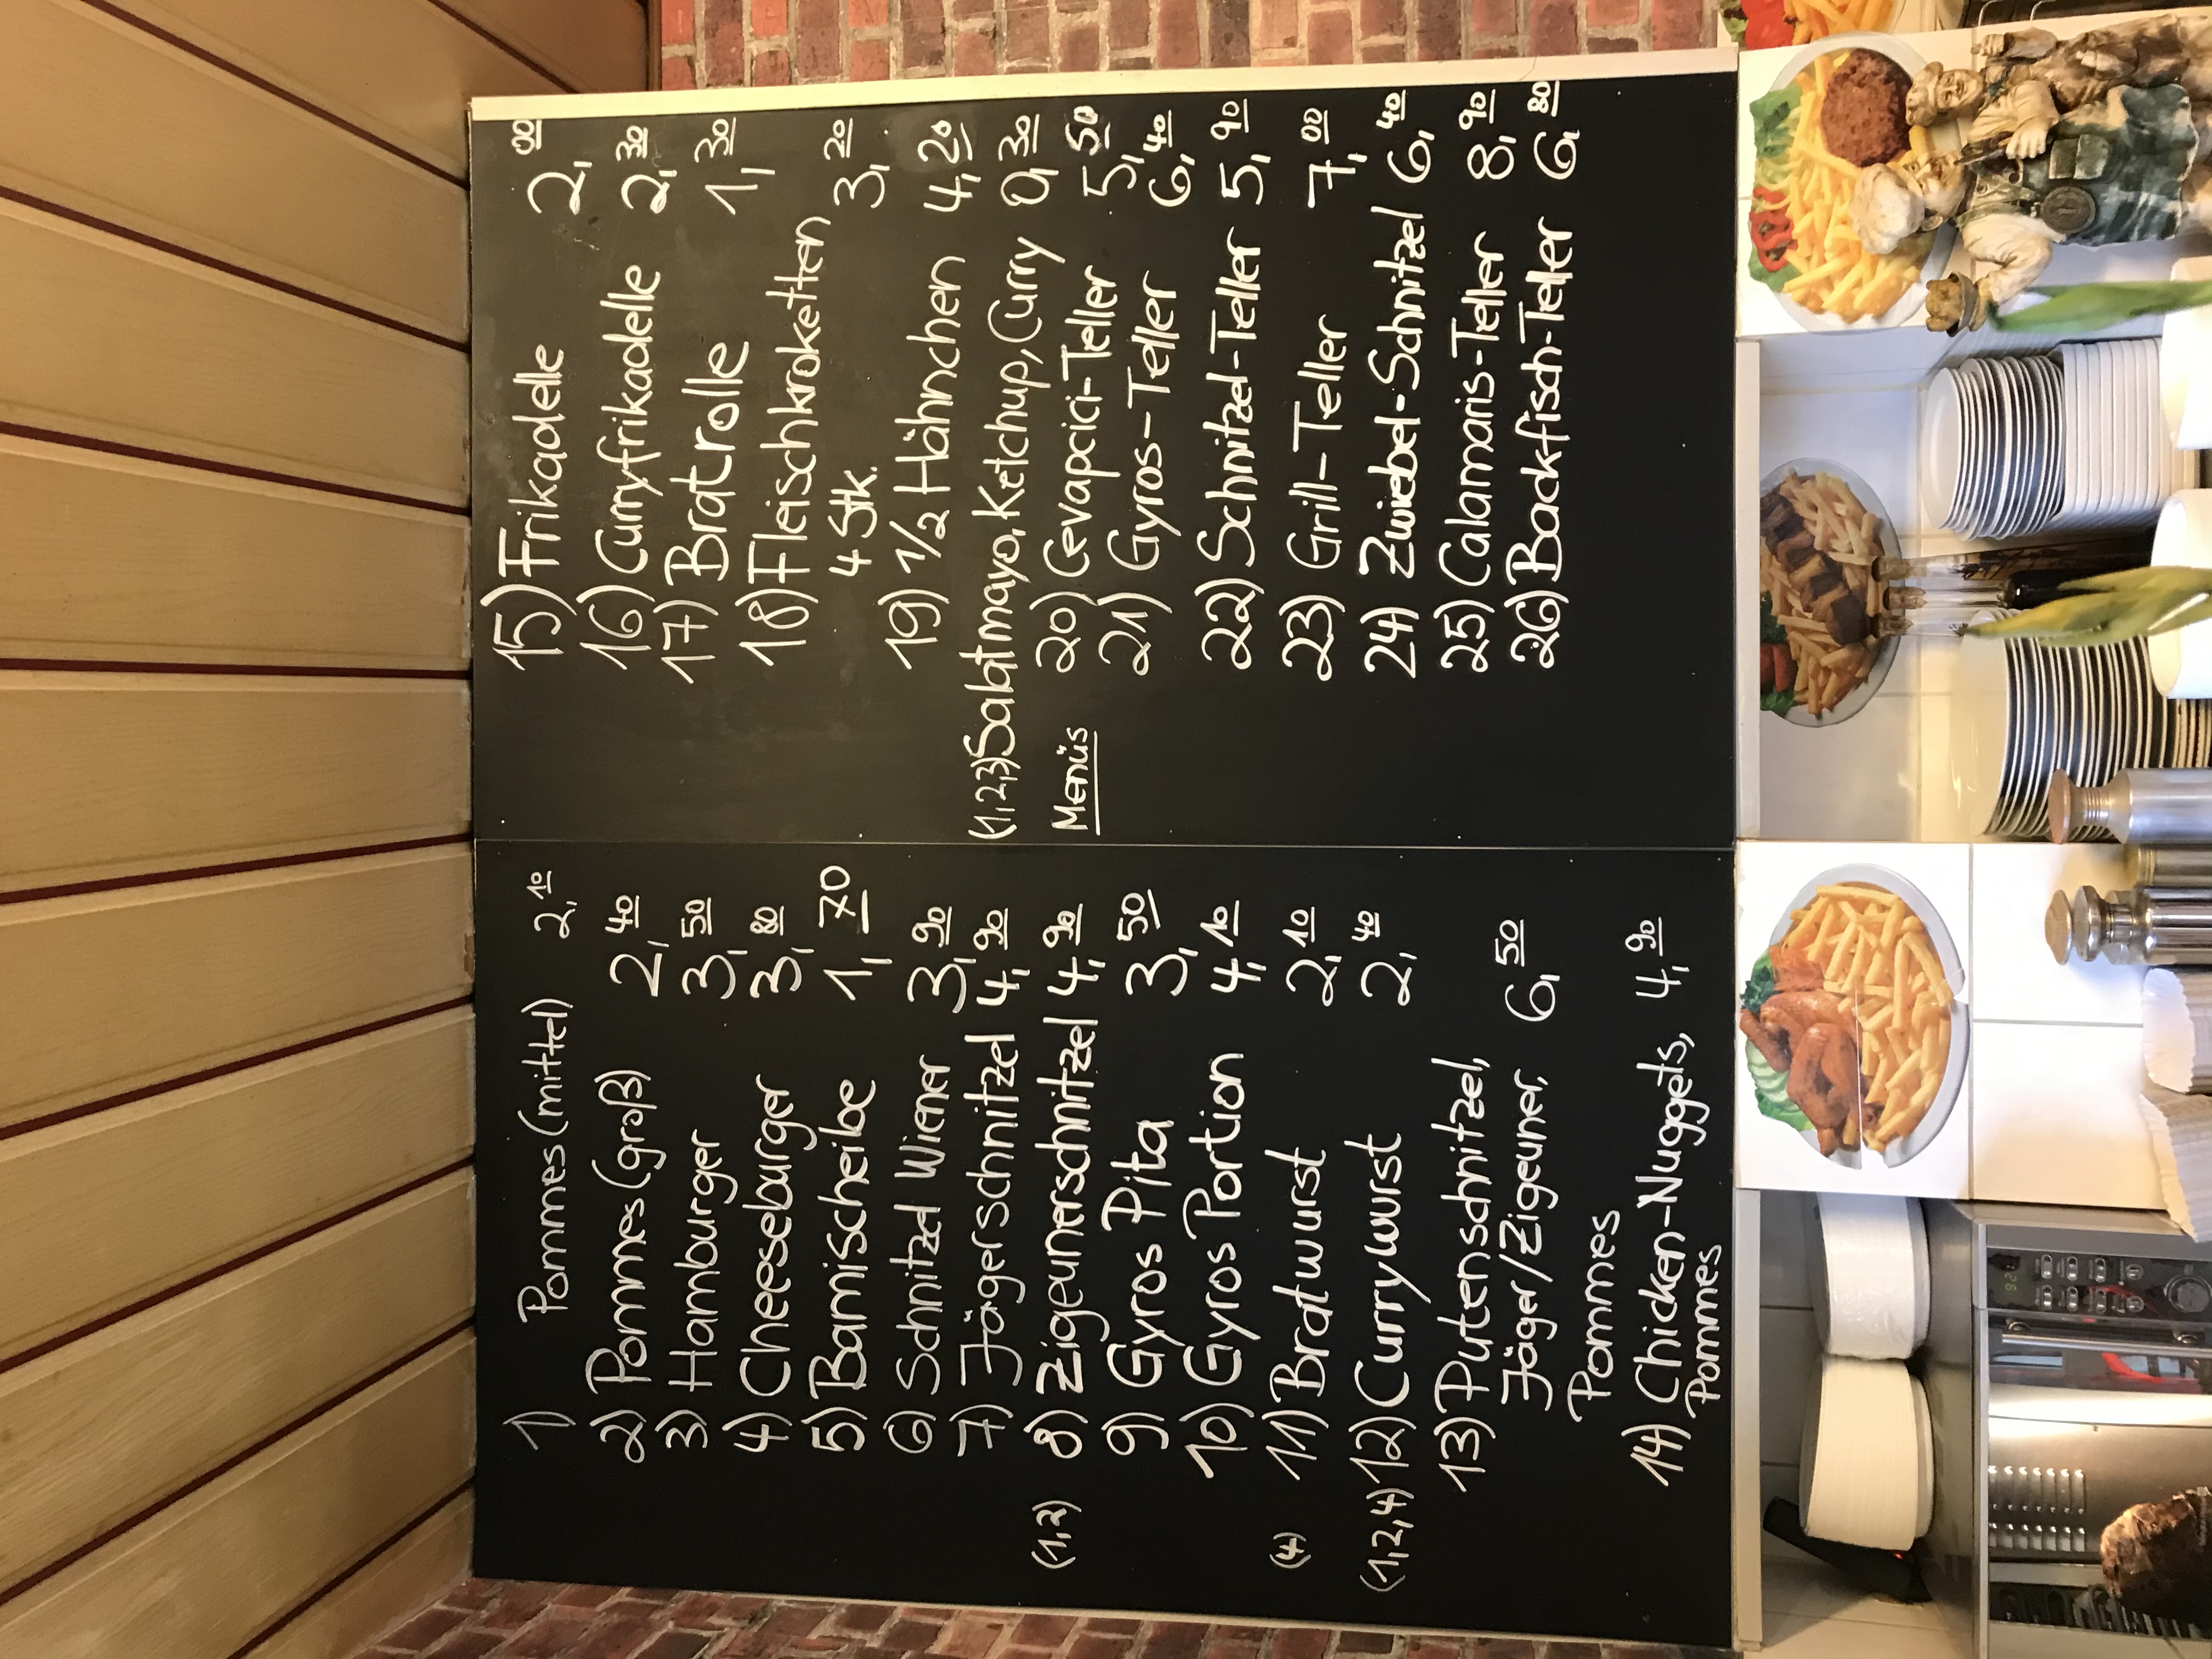 1) Pommes (mittel) 2,10
2) Pommes (groß) 2,40
3) Hamburger 3,50
4) Cheeseburger 3,80
5) Bamischeibe 1,70
6) Schnitzel Wiener 3,90
7) Jägerschnitzel 4,90
(1,2) 8) Zigeunerschnitzel 4,90
9) Gyros Pita 3,50
10) Gyros Portion 4,10
(4) 11) Bratwurst 2,10
(1,2,4) 12) Currywurst 2,40
13) Putenschnitzel,
Jäger/Zigeuner, 6,50
Pommes
14) Chicken-Nuggets, 4,90
Pommes
15) Frikadelle 2,00
16) Curryfrikadelle 2,30
17) Bratrolle 1,30
18) Fleischkroketten
4 Stk. 3,20
19) 1/2 Hähnchen 4,20
(1,2,3) Salatmayo, Ketchup, Curry 0,30
Menüs 20) Cevapcici-Teller 5,50
21) Gyros-Teller 6,40
22) Schnitzel-Teller 5,90
23) Grill-Teller 7,00
24) Zwiebel-Schnitzel 6,40
25) Calamaris-Teller 8,90
26) Backfisch-Teller 6,80